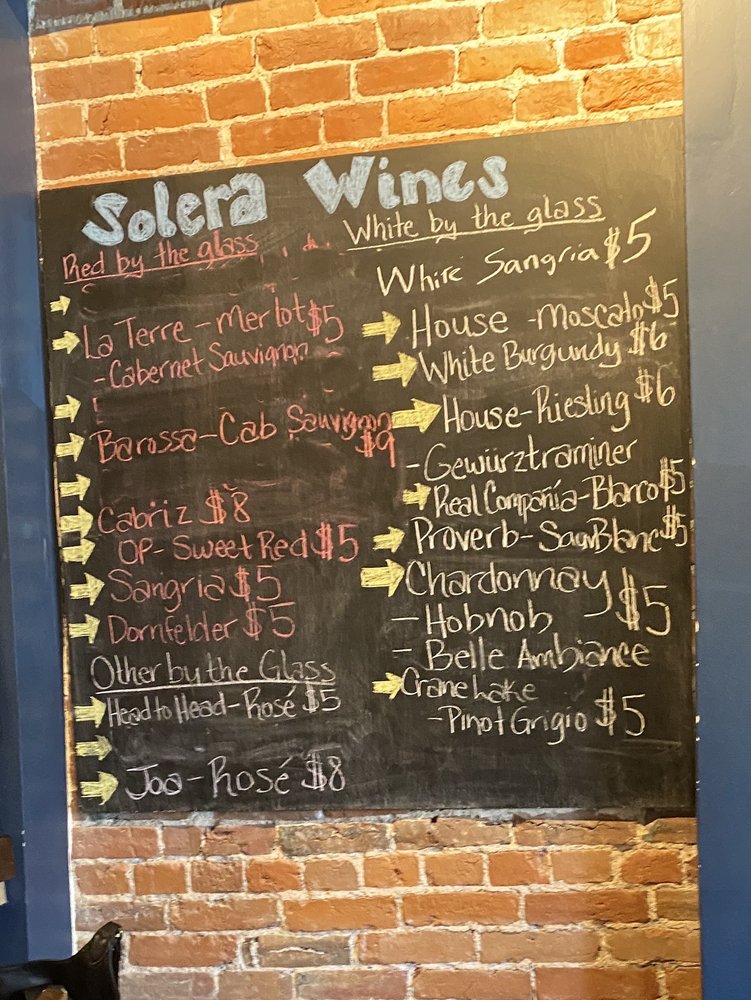 Solera Wines
Red by the glass
La Terre - Merlot $5
- Cabernet Sauvignon
Barossa - Cab Sauvignon
$9
Cabriz $8
OP - Sweet Red $5
Sangria $5
Dornfelder $5
Other by the Glass
Head to Head - Rosé $5
Joa - Rosé $8
White by the glass
White Sangria $5
House - Moscato $5
White Burgundy $6
House - Riesling $6
- Gewürztraminer
Real Compañía - Blanco $5
Proverb - Sauv Blanc $5
Chardonnay
$5
- Hobnob
- Belle Ambiance
Crane Lake
- Pinot Grigio $5